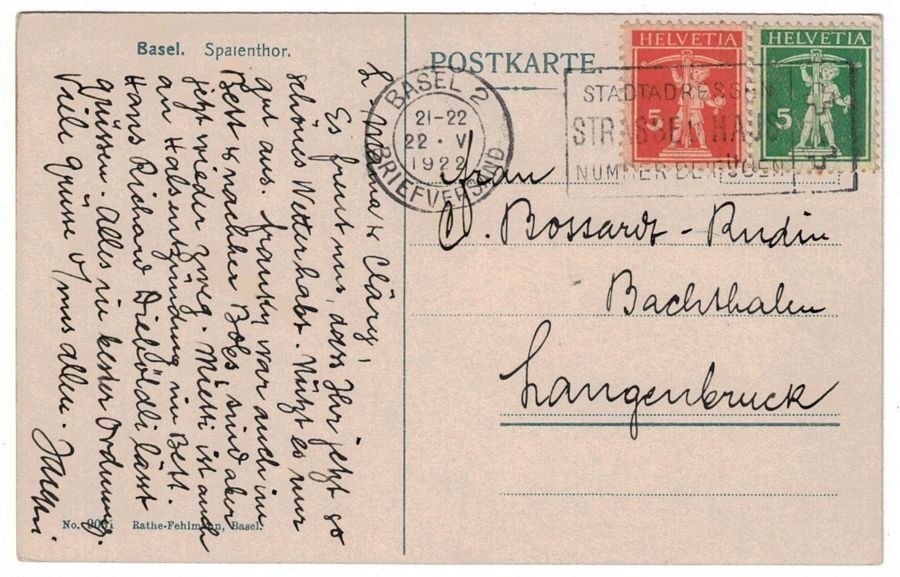 Basel. Spalenthor.
POSTKARTE.
HELVETIA
5
HELVETIA
5
BASEL 2
21-22
22 · V
1922
BRIEFVERSAND
STADTADRESSEN
STRASSE
NUMMER BEIFÜGEN
L. Mama & Cläry,
Es freut uns, dass Ihr jetzt so
schönes Wetter habt. Nützt es nur
gut aus. Franky war auch im
Bett & nachher Boks, sind aber
jetzt wieder zweg. Mietti ist auch
an Halsentzündung im Bett.
Hans Richard Diehöldli lässt
grüssen. Alles in bester Ordnung.
Viele Grüsse v/ uns allen.
Frau
W. Bossardt-Rudin
Bachthalen
Langenbruck
No. Rathe-Fehlmann, Basel.